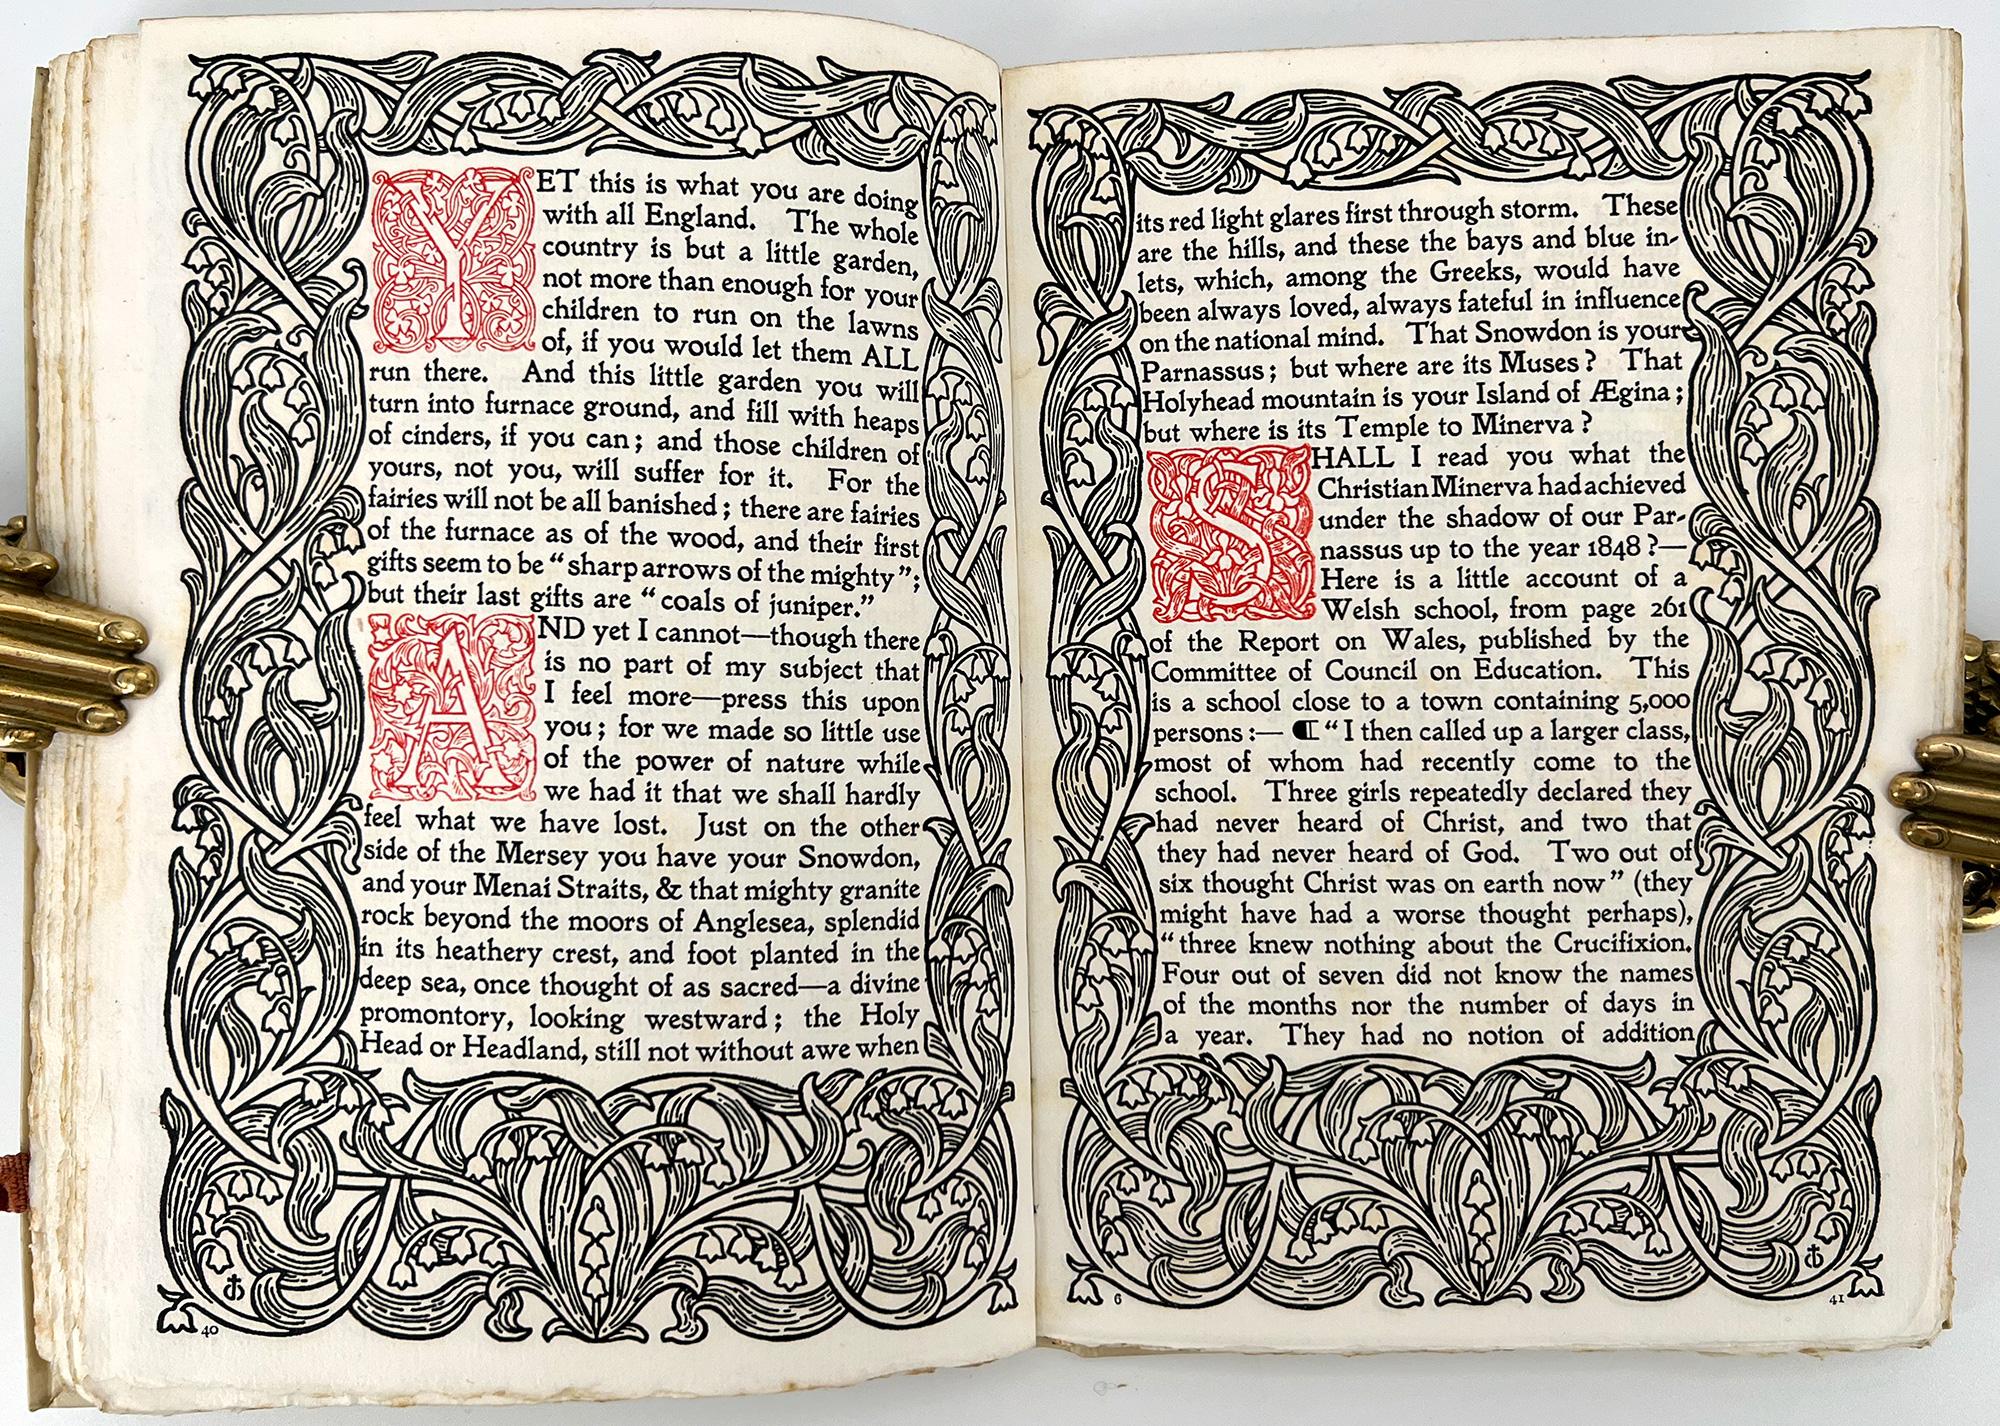 YET this is what you are doing
with all England. The whole
country is but a little garden,
not more than enough for your
children to run on the lawns
of, if you would let them ALL
run there. And this little garden you will
turn into furnace ground, and fill with heaps
of cinders, if you can; and those children of
yours, not you, will suffer for it. For the
fairies will not be all banished; there are fairies
of the furnace as of the wood, and their first
gifts seem to be “sharp arrows of the mighty”;
but their last gifts are “coals of juniper.”
AND yet I cannot—though there
is no part of my subject that
I feel more—press this upon
you; for we made so little use
of the power of nature while
we had it that we shall hardly
feel what we have lost. Just on the other
side of the Mersey you have your Snowdon,
and your Menai Straits, & that mighty granite
rock beyond the moors of Anglesea, splendid
in its heathery crest, and foot planted in the
deep sea, once thought of as sacred—a divine
promontory, looking westward; the Holy
Head or Headland, still not without awe when
40
its red light glares first through storm. These
are the hills, and these the bays and blue in-
lets, which, among the Greeks, would have
been always loved, always fateful in influence
on the national mind. That Snowdon is your
Parnassus; but where are its Muses? That
Holyhead mountain is your Island of Ægina;
but where is its Temple to Minerva?
SHALL I read you what the
Christian Minerva had achieved
under the shadow of our Par-
nassus up to the year 1848?—
Here is a little account of a
Welsh school, from page 261
of the Report on Wales, published by the
Committee of Council on Education. This
is a school close to a town containing 5,000
persons:— ¶ “I then called up a larger class,
most of whom had recently come to the
school. Three girls repeatedly declared they
had never heard of Christ, and two that
they had never heard of God. Two out of
six thought Christ was on earth now” (they
might have had a worse thought perhaps),
“three knew nothing about the Crucifixion.
Four out of seven did not know the names
of the months nor the number of days in
a year. They had no notion of addition
6
41